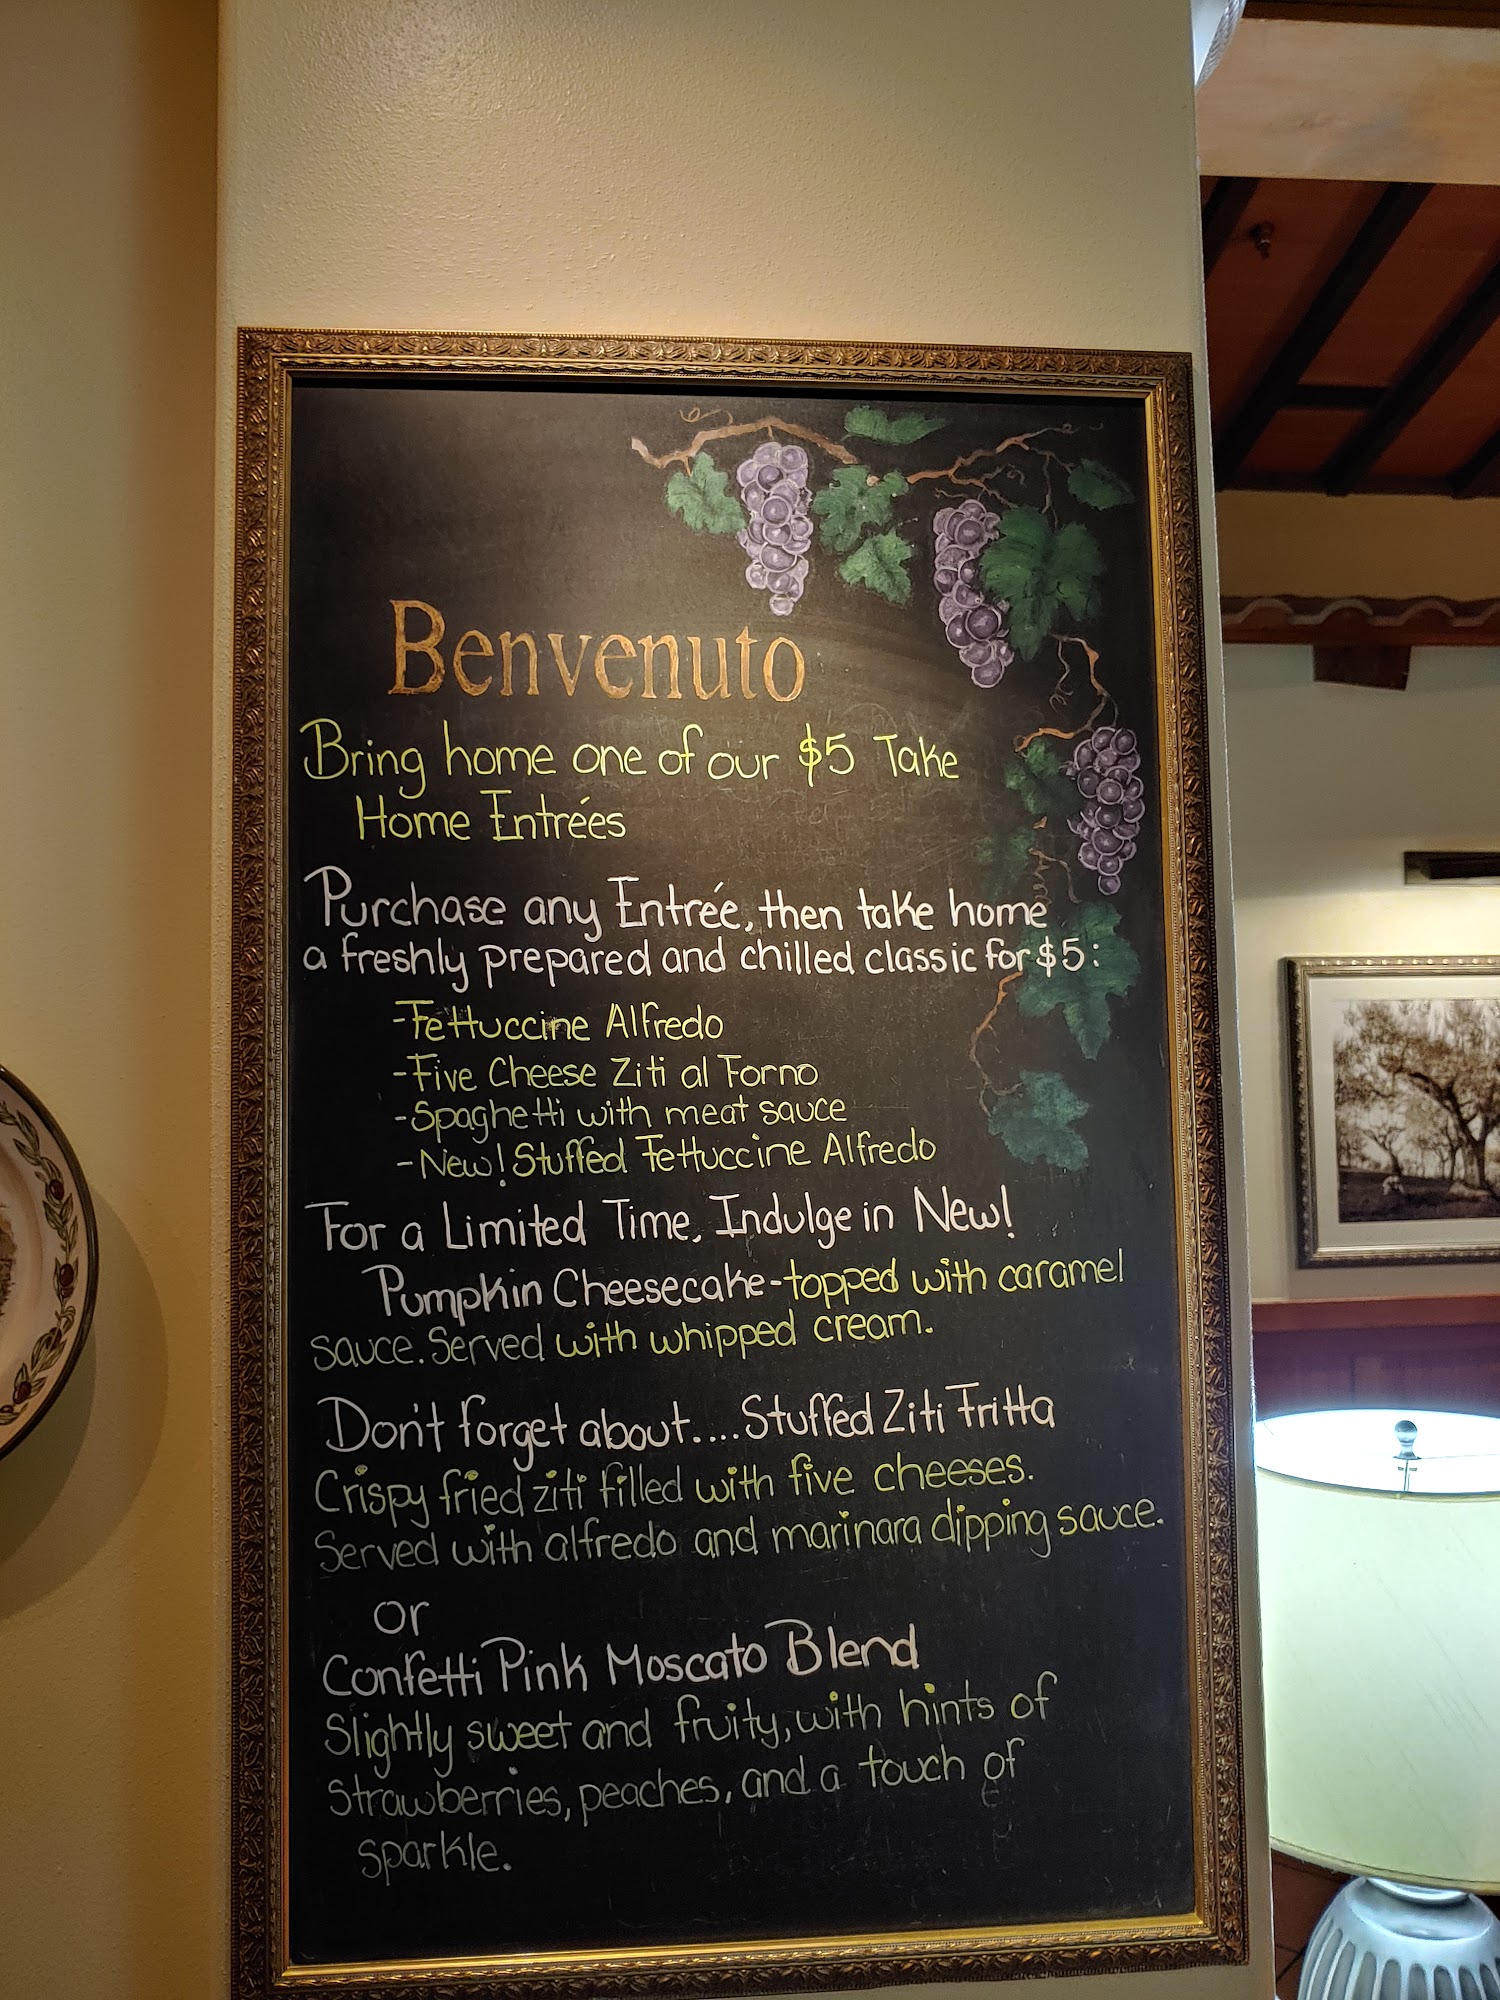 Benvenuto
Bring home one of our $5 Take
Home Entrées
Purchase any Entrée, then take home
a freshly prepared and chilled classic for $5:
-Fettuccine Alfredo
-Five Cheese Ziti al Forno
-Spaghetti with meat sauce
-New! Stuffed Fettuccine Alfredo
For a Limited Time, Indulge in New!
Pumpkin Cheesecake-topped with caramel
sauce. Served with whipped cream.
Don't forget about....Stuffed Ziti Fritta
Crispy fried ziti filled with five cheeses.
Served with alfredo and marinara dipping sauce.
or
Confetti Pink Moscato Blend
Slightly sweet and fruity, with hints of
Strawberries, peaches, and a touch of
sparkle.